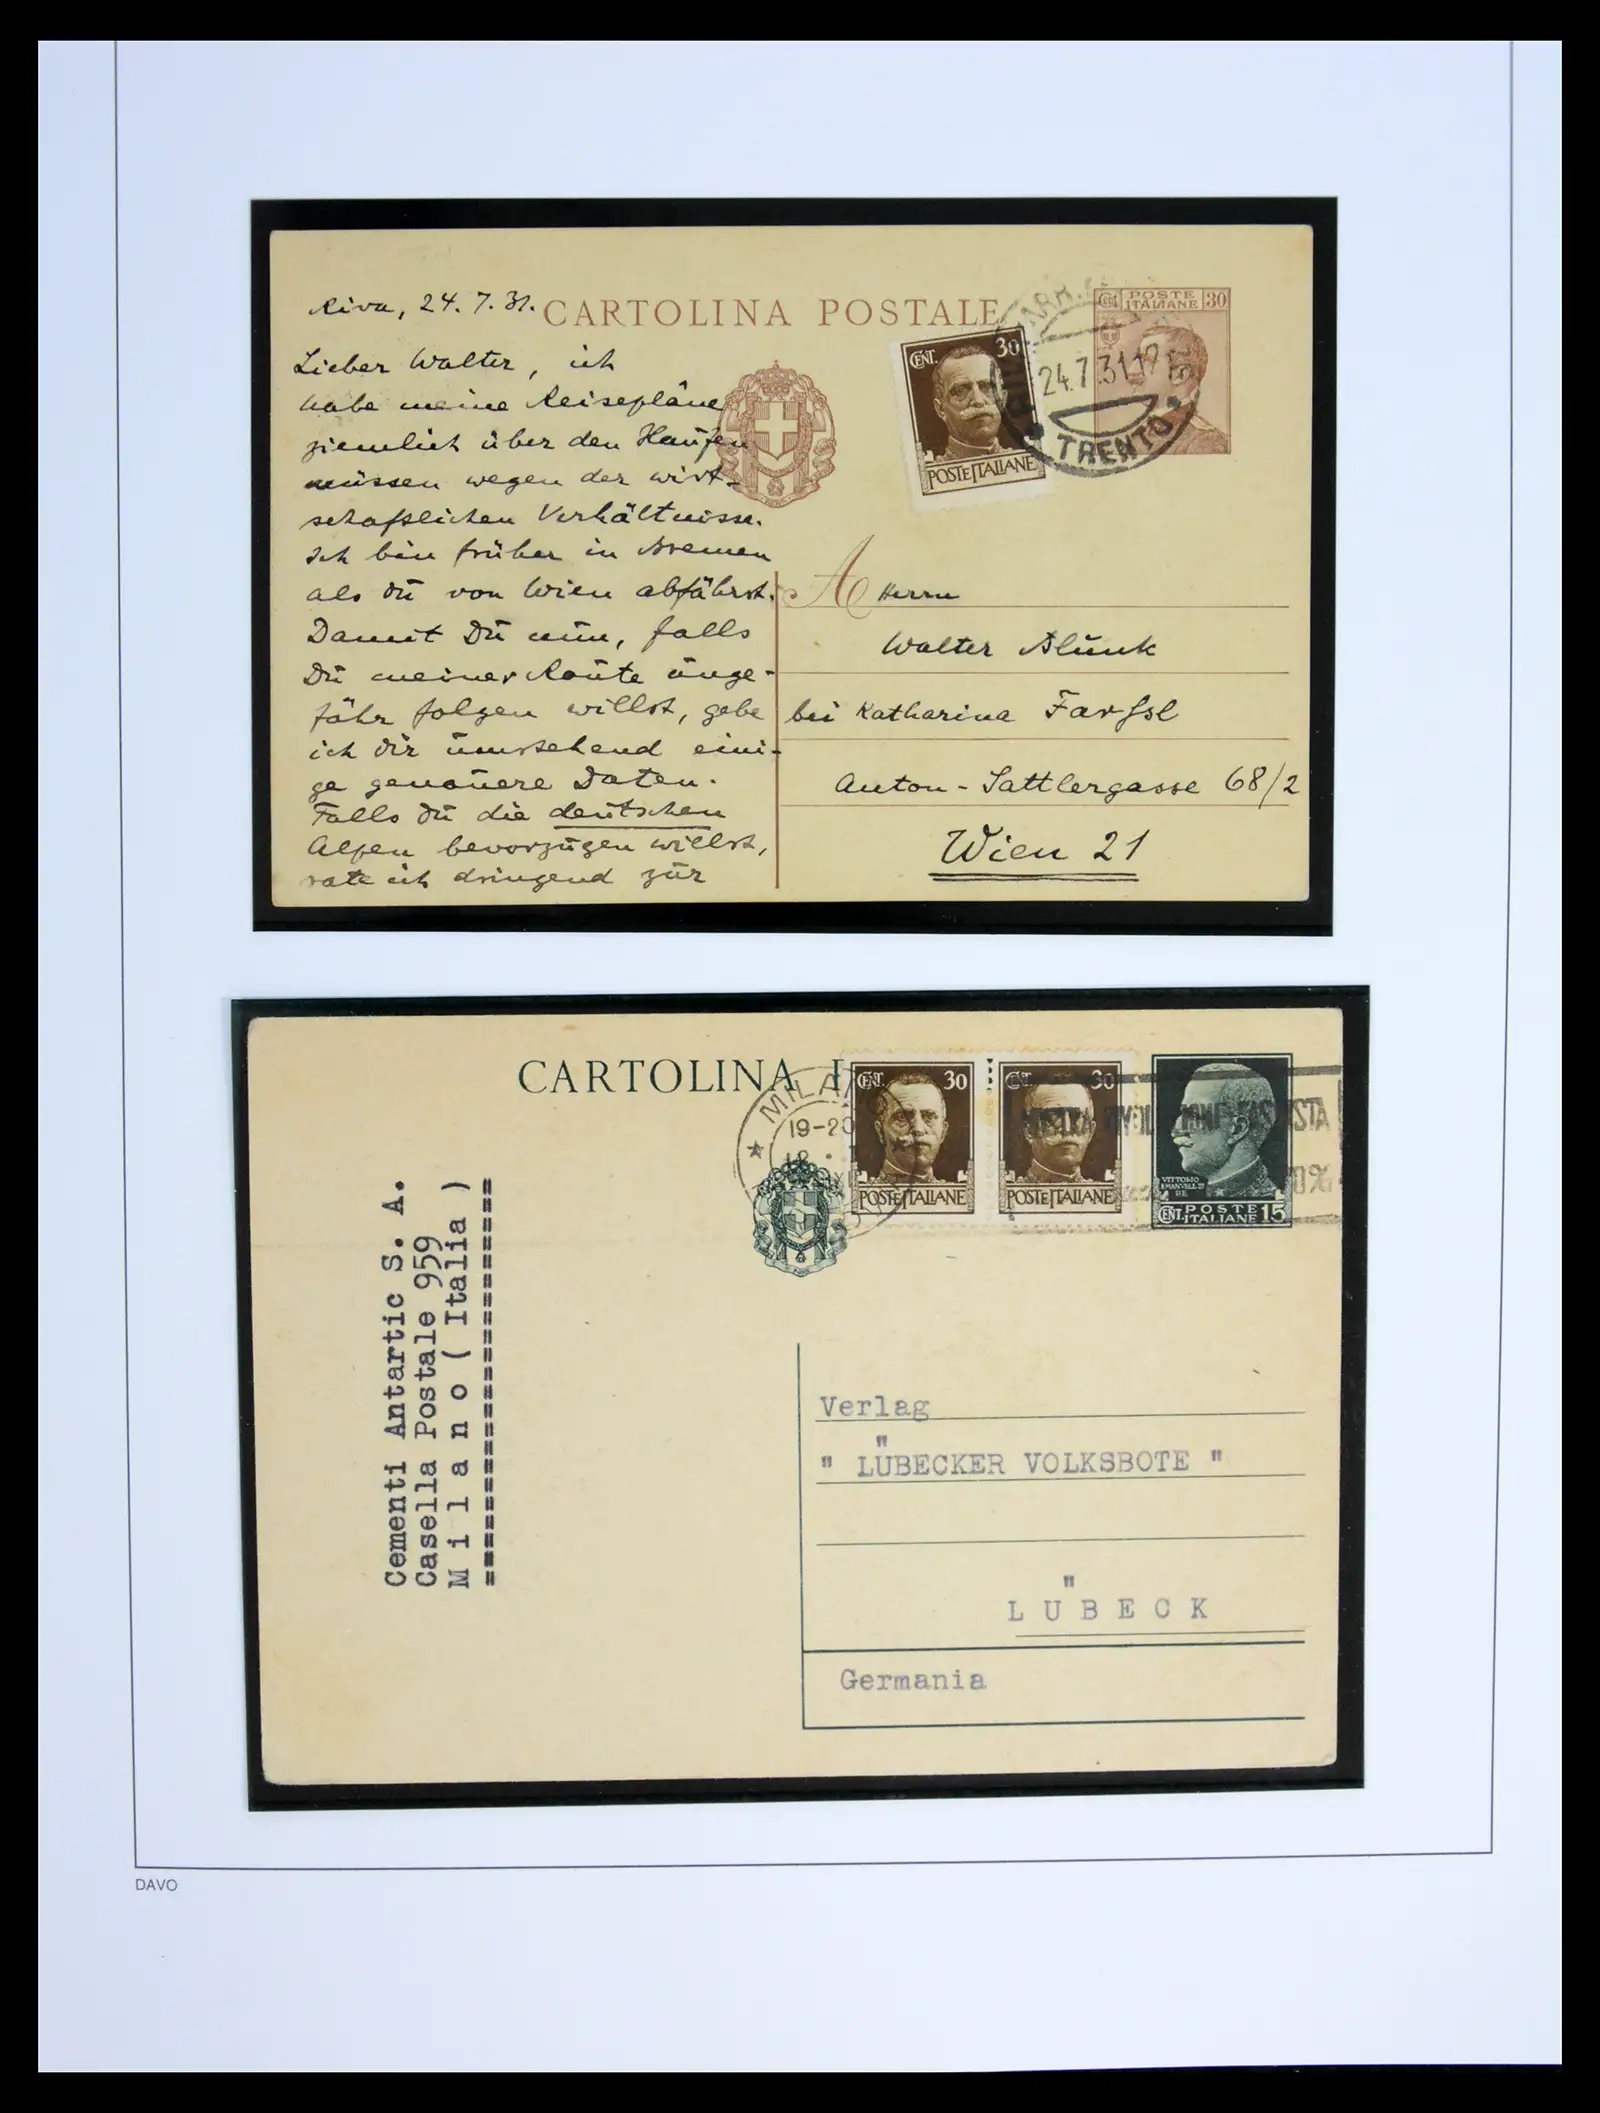 Riva, 24. 7. 31.
CARTOLINA POSTALE
Cent. POSTE ITALIANE 30
CENT. 30
POSTE ITALIANE
24.7.31.17
TRENTO
Lieber Walter, ich
habe meine Reisepläne
ziemlich über den Haufen
müssen wegen der wirt-
schaftlichen Verhältnisse.
Ich bin früher in Bremen
als Du von Wien abfährst.
Damit Du nun, falls
Du meiner Route unge-
fähr folgen willst, gebe
ich dir umstehend eini-
ge genauere Daten.
Falls Du die deutschen
Alpen bevorzugen willst,
rate ich dringend zur
A Herrn
Walter Blunk
bei Katharina
Anton-Sattlergasse 68/2
Wien 21
CARTOLINA
MILANO
19-20
CENT. 30
POSTE ITALIANE
CENT. 30
POSTE ITALIANE
VITTORIO
EMANUELE III
RE
CENT. POSTE ITALIANE 15
Cementi Antartic S. A.
Casella Postale 959
M i l a n o ( Italia )
==========================
Verlag
" LÜBECKER VOLKSBOTE "
L Ü B E C K
Germania
DAVO